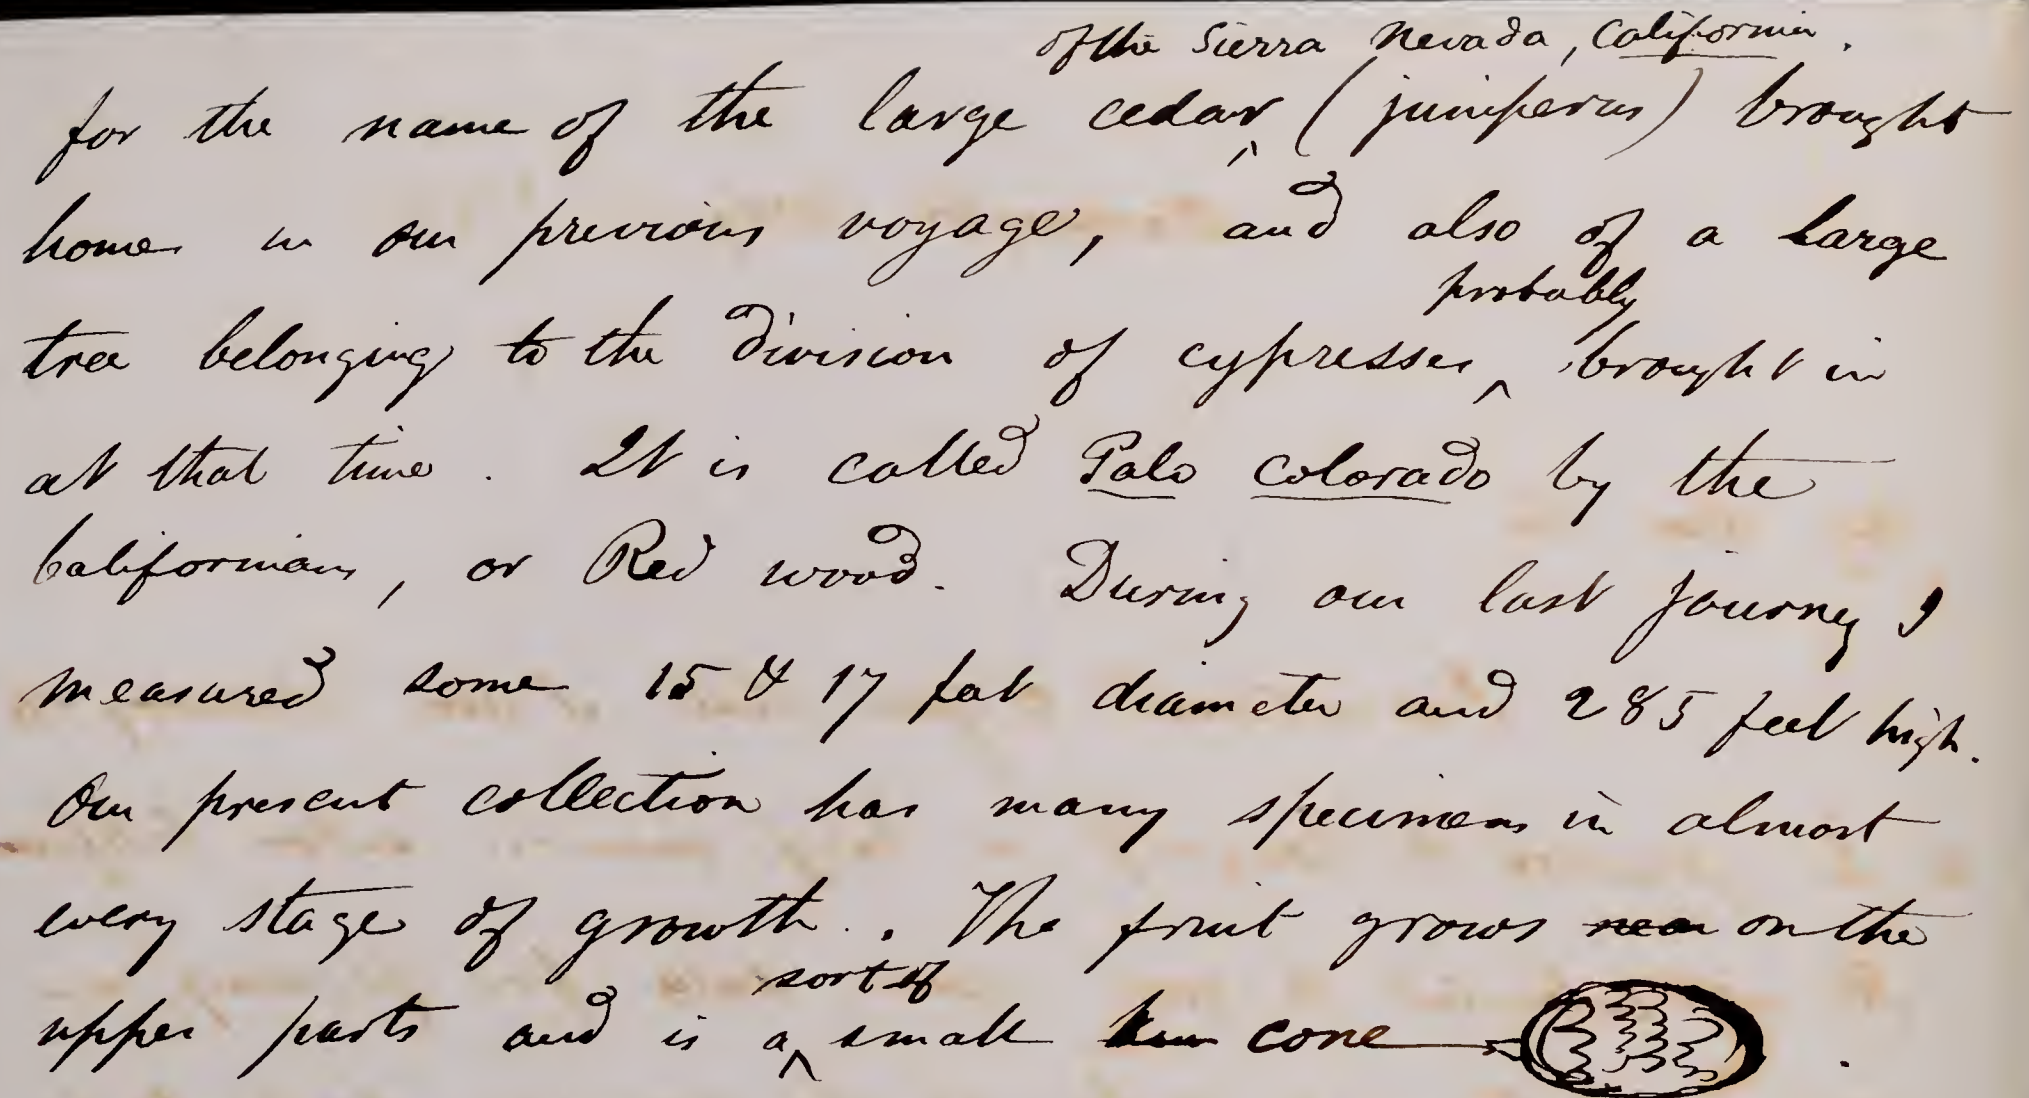 of the Sierra Nevada, California.
for the name of the large cedar ^ (juniperus) brought
home in our previous voyage, and also of a large
probably
tree belonging to the division of cypresses ^ brought in
at that time. It is called Palo colorado by the
Californians, or Red wood. During our last journey I
measured some 15 & 17 feet diameter and 285 feet high.
Our present collection has many specimens in almost
every stage of growth. The fruit grows near on the
sort of
upper parts and is a ^ small cone